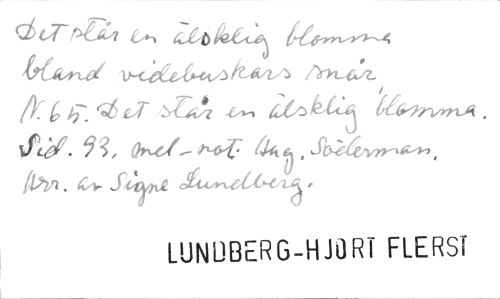 Det står en älsklig blomma
bland videbuskars snår
N. 65. Det står en älsklig blomma.
Sid. 93. mel-not. Aug. Söderman,
Arr. av Signe Lundberg.
LUNDBERG-HJORT FLERST